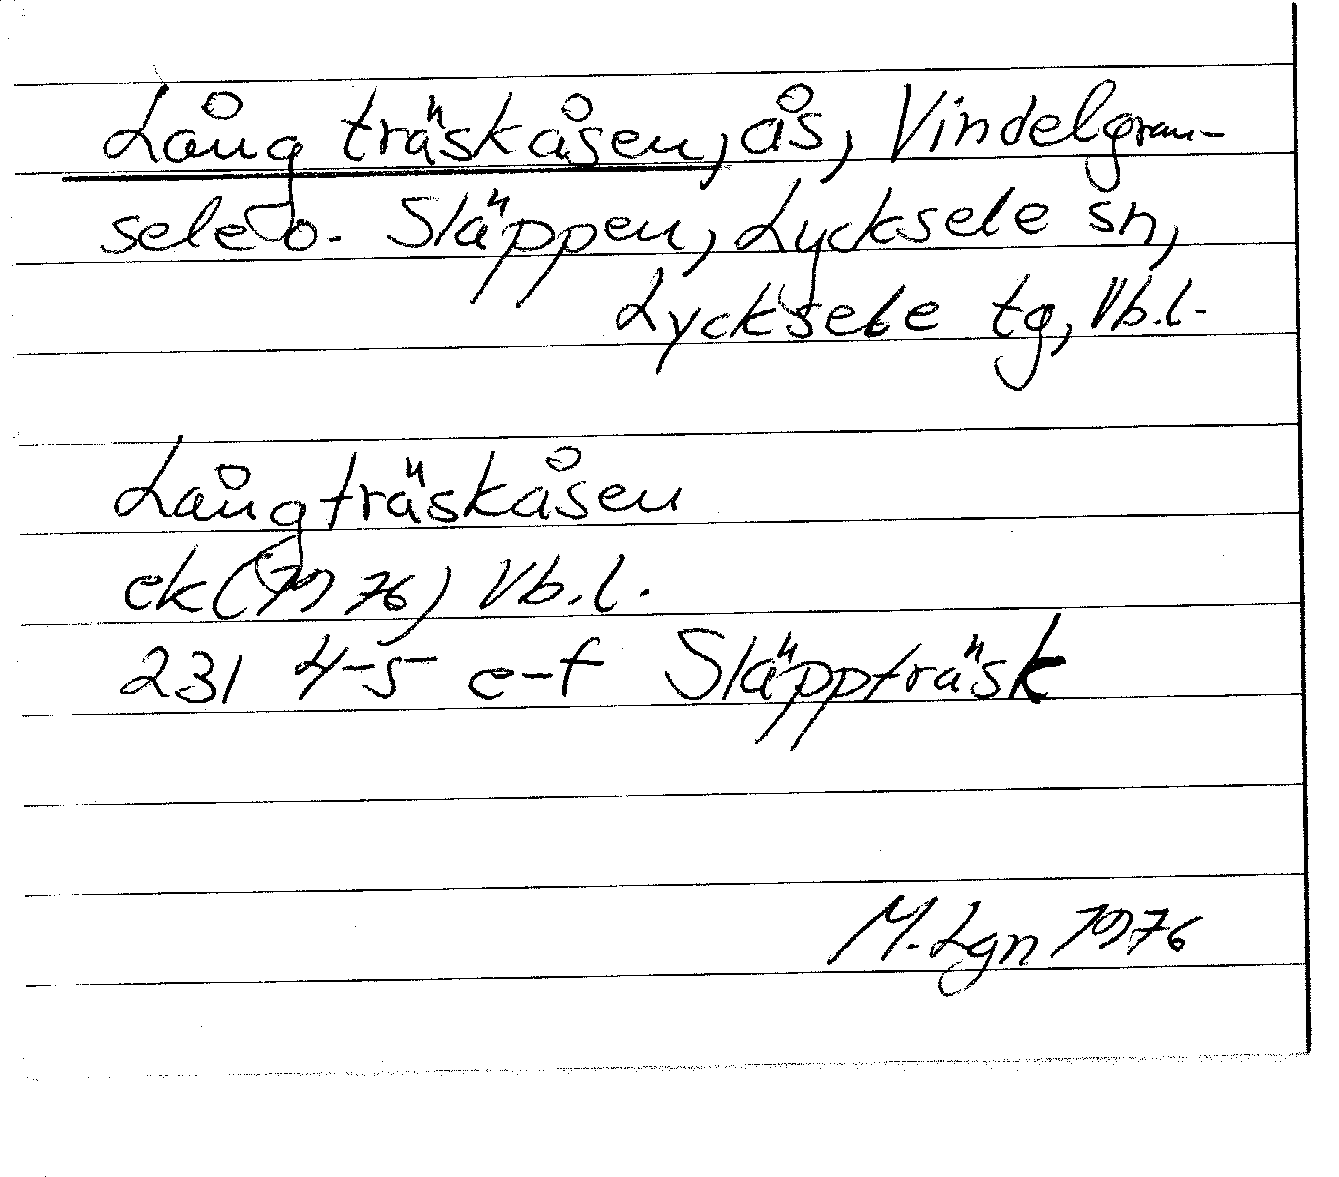 Långträskåsen, ås, Vindelgran-
sele o. Släppen, Lycksele sn,
Lycksele tg, Vb.l.
Långträskåsen
ek (1976) Vb.l.
231 4-5 e-f Släppträsk
M. Lgn 1976